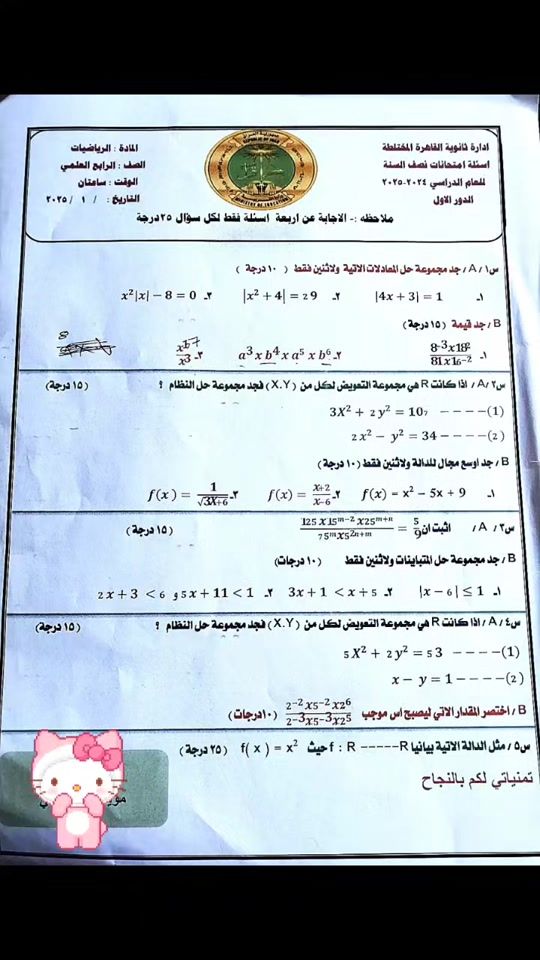 ادارة ثانوية القاهرة المختلطة
اسئلة امتحانات نصف السنة
للعام الدراسي ٢٠٢٤-٢٠٢٥
الدور الاول
REPUBLIC OF IRAQ
MINISTRY OF EDUCATION
المادة : الرياضيات
الصف : الرابع العلمي
الوقت : ساعتان
التاريخ : / ١ / ٢٠٢٥
ملاحظه :- الاجابة عن اربعة اسئلة فقط لكل سؤال ٢٥ درجة
س١ / A / جد مجموعة حل المعادلات الاتية ولاثنين فقط ( ١٠ درجة )
١. |4x + 3| = 1 ٢. |x² + 4| = 29 ٣. x²|x| − 8 = 0
B / جد قيمة (١٥ درجة)
١. 8⁻³x18² / 81x16⁻² ٢. a³ x b⁴ x a⁵ x b⁶ ٣.
8
س٢ / A / اذا كانت R هي مجموعة التعويض لكل من (X.Y) فجد مجموعة حل النظام ؟ (١٥ درجة)
3X² + 2y² = 107 - - - -(1)
2x² − y² = 34 - - - -(2)
B / جد اوسع مجال للدالة ولاثنين فقط (١٠ درجة)
١. f(x) = x² − 5x + 9 ٢. f(x) = x+2 / x−6 ٣. f(x) = 1 / √3X+6
س٣ / A / اثبت ان 125 X 15ᵐ⁻² X25ᵐ⁺ⁿ / 75ᵐX5²ⁿ⁺ᵐ = 5/9 (١٥ درجة)
B / جد مجموعة حل المتباينات ولاثنين فقط (١٠ درجات)
١. |x − 6| ≤ 1 ٢. 3x + 1 < x + 5 ٣. 5x + 11 < 1 و 2x + 3 < 6
س٤ / A / اذا كانت R هي مجموعة التعويض لكل من (X.Y) فجد مجموعة حل النظام ؟ (١٥ درجة)
5X² + 2y² = 53 - - - -(1)
x − y = 1 - - - -(2)
B / اختصر المقدار الاتي ليصبح اس موجب 2⁻²x5⁻²x2⁶ / 2⁻³x5⁻³x2⁵ (١٠ درجات)
س٥ / مثل الدالة الاتية بيانيا f : R -----R حيث f( x ) = x² (٢٥ درجة)
تمنياتي لكم بالنجاح